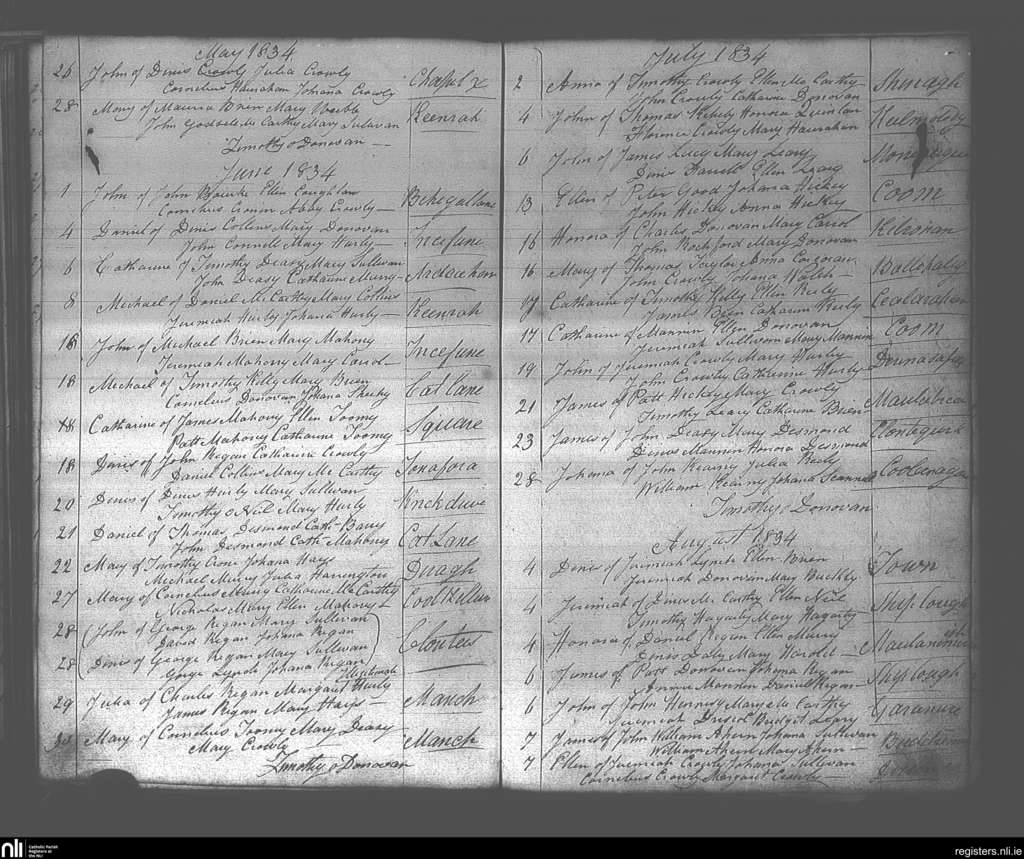 May 1834
26 John of Denis Crowly Julia Crowly
Cornelius Hanrahan Johana Crowly Chapel X
28 Mary of Maurice Brien Mary Webb
John Mc Carthy Mary Sullivan Keenrah
Timothy o Donovan
June 1834
1 John of John Bourke Ellen Coughlan
Cornelius Cronin Abby Crowly
4 Daniel of Denis Collins Mary Donovan
John Connell Mary Hurly Incefune
6 Catharine of Timothy Deasy Mary Sullivan
John Deasy Catharine Murry
8 Michael of Daniel Mc Carthy Mary Collins
Jeremiah Hurly Johana Hurly Keenrah
18 John of Michael Brien Mary Mahony
Jeremiah Mahony Mary Carrol Incefune
18 Michael of Timothy Kelly Mary Brien
Cornelius Donovan Johana Sheehy Cat Lane
18 Catharine of James Mahony Ellen Toomy
Patt Mahony Catharine Toomy Square
18 Denis of John Regan Catharine Crowly
Daniel Collins Mary Mc Carthy Tonafora
20 Denis of Denis Hurly Mary Sullivan
Timothy o Neil Mary Hurly Knckduve
21 Daniel of Thomas Desmond Cath Barry
John Desmond Cath Mahony Cat Lane
22 Mary of Timothy Crone Johana Hays
Michael Murry Julia Harrington Driagh
27 Mary of Cornelius Murry Catharine Mc Carthy
Nicholas Mary Ellen Mahony
28 John of George Regan Mary Sullivan
David Regan Johana Regan Clontas
28 Denis of George Regan Mary Sullivan
Gorge Lynch Johana Regan
Illegitimate
29 Julia of Charles Regan Margaret Hurly
James Regan Mary Hays Manch
30 Mary of Cornelius Toomy Mary Deasy
Mary Crowly Manch
Timothy o Donovan
July 1834
2 Anna of Timothy Crowly Ellen Mc Carthy
John Crowly Catharine Donovan
4 John of Thomas Kehely Honora Quinlan
Florence Crowly Mary Hanrahan
6 John of James Lucy Mary Leary
Denis Ellen Leary
13 Ellen of Peter Good Johana Hickey
John Hickey Anna Hickey Coom
15 Honora of Charles Donovan Mary Carrol
John Rochford Mary Donovan Kilronan
16 Mary of Thomas Taylor Anna Corcoran
John Crowly Johana Walsh
17 Catharine of Timothy Kelly Ellen Reily
James Brien Catharine Reily
17 Catharine of Mannin Ellen Donovan
Jeremiah Sullivan Mary Mannin Coom
19 John of Jeremiah Crowly Mary Hurly
John Crowly Catharine Hurly
21 James of Patt Hickey Mary Crowly
Timothy Leary Catharine Brien
23 James of John Deasy Mary Desmond
Denis Mannin Honora Desmond
28 Johana of John Kearny Julia Reily
William Kearny Johana Scannell
Timothy o Donovan
August 1834
4 Denis of Jeremiah Lynch Ellen Brien
Jeremiah Donovan Mary Buckly Town
4 Jeremiah of Denis Mc Carthy Ellen Neil
Timothy Hagarty Mary Hagarty Ship lough
4 Honora of Daniel Regan Ellen Murry
Denis Daly Mary Harold
6 James of Patt Donovan Johana Regan
Mannin Daniel Regan Ship lough
6 John of John Hennesy Mary Mc Carthy
Jeremiah Driscol Bridget Leary
7 James of John William Ahern Johana Sullivan
William Ahern Mary Ahern
7 Ellen of Jeremiah Crowly Johana Sullivan
Cornelius Crowly Margaret Crowly
nli Catholic Parish Registers at the NLI
registers.nli.ie